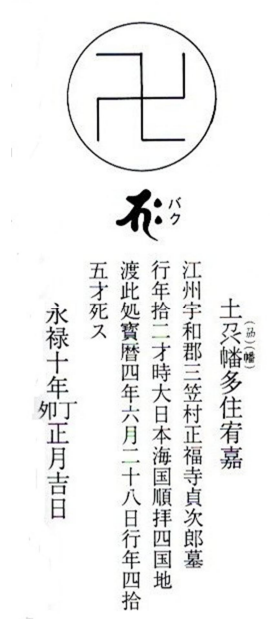 卍
バク
土幡多住宥嘉
(幡)
江州宇和郡三笠村正福寺貞次郎墓
行年拾二才時大日本海国順拝四国地
渡此処寳暦四年六月二十八日行年四拾
五才死ス
永禄十年丁夘正月吉日